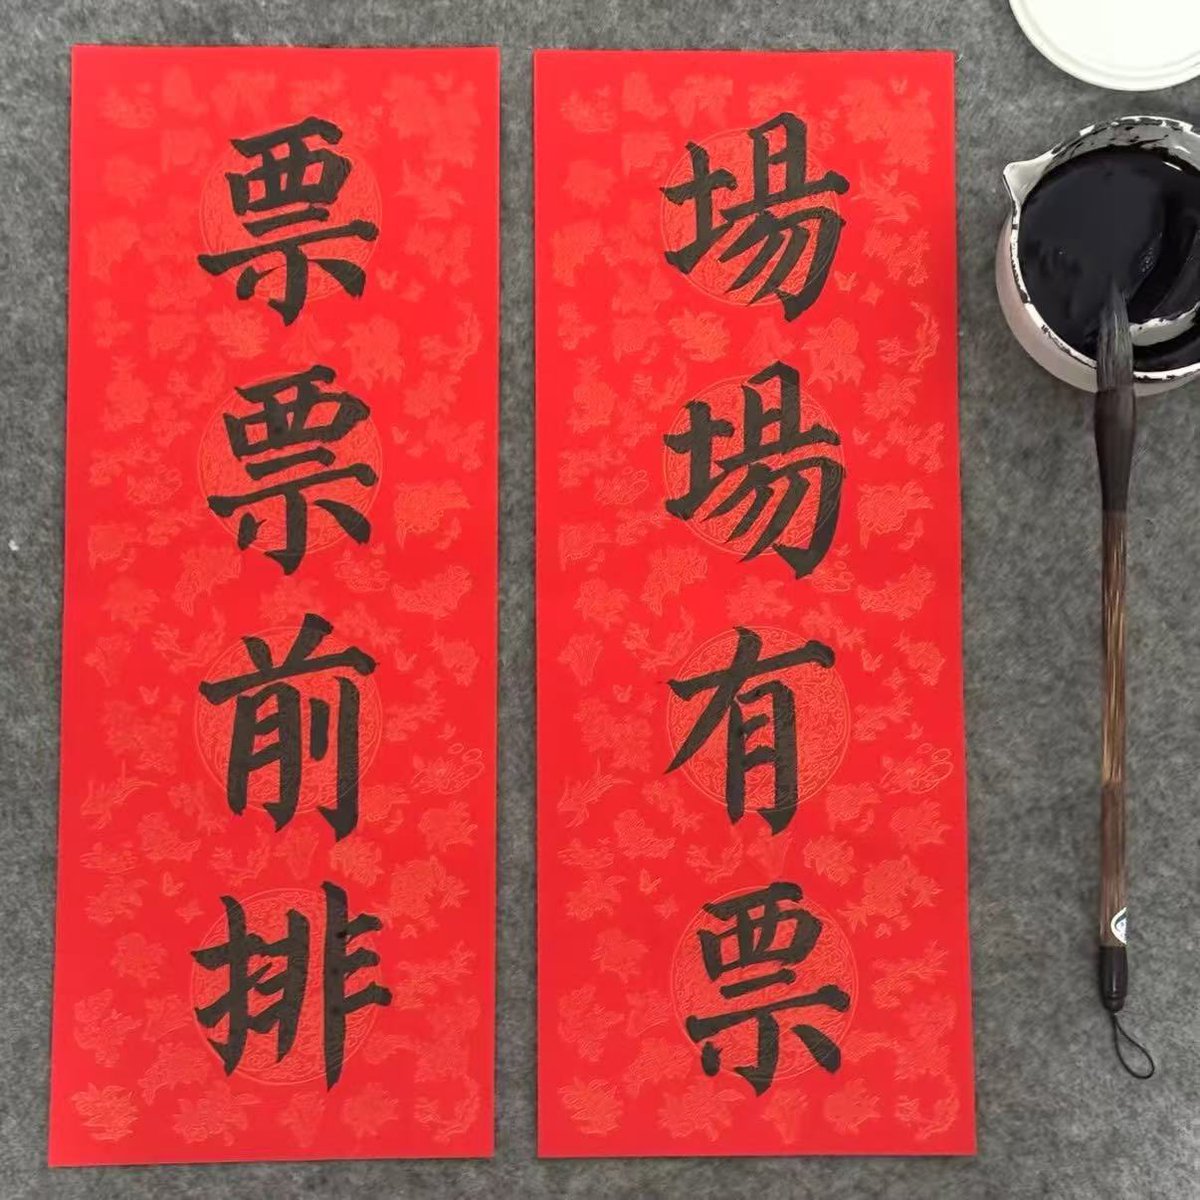 場場有票
票票前排